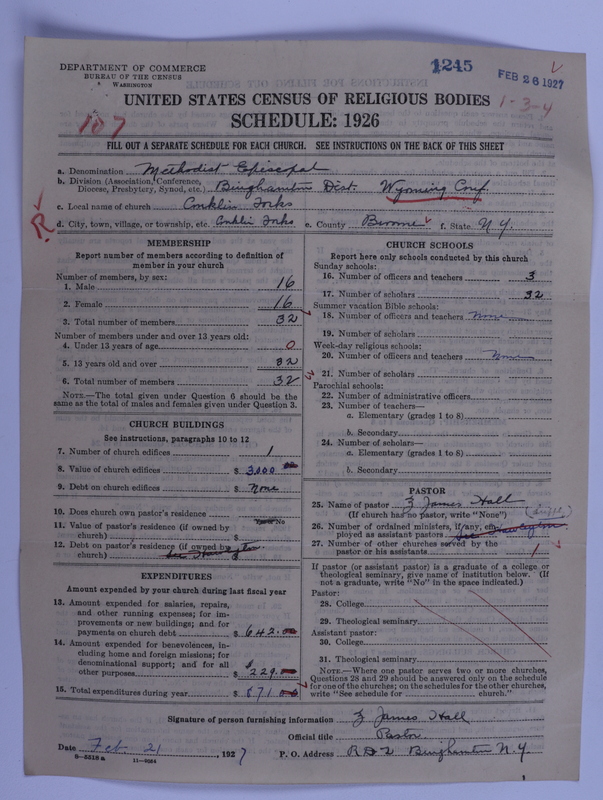 DEPARTMENT OF COMMERCE
BUREAU OF THE CENSUS
WASHINGTON
1245
FEB 26 1927
UNITED STATES CENSUS OF RELIGIOUS BODIES
1-3-4
107
SCHEDULE: 1926
FILL OUT A SEPARATE SCHEDULE FOR EACH CHURCH. SEE INSTRUCTIONS ON THE BACK OF THIS SHEET
a. Denomination Methodist Episcopal
b. Division (Association, Conference, Diocese, Presbytery, Synod, etc.) Binghamton Dist. Wyoming Conf
c. Local name of church Conklin Forks
R
d. City, town, village, or township, etc. Conklin Forks e. County Broome f. State N.Y.
MEMBERSHIP
Report number of members according to definition of
member in your church
Number of members, by sex:
1. Male 16
2. Female 16
3. Total number of members 32
Number of members under and over 13 years old:
4. Under 13 years of age 0
5. 13 years old and over 32
6. Total number of members 32
NOTE.—The total given under Question 6 should be the
same as the total of males and females given under Question 3.
CHURCH BUILDINGS
See instructions, paragraphs 10 to 12
7. Number of church edifices 1
8. Value of church edifices $ 3,000
9. Debt on church edifices $ None
10. Does church own pastor's residence No
11. Value of pastor's residence (if owned by
church) $
12. Debt on pastor's residence (if owned by
church) $
EXPENDITURES
Amount expended by your church during last fiscal year
13. Amount expended for salaries, repairs,
and other running expenses; for im-
provements or new buildings; and for
payments on church debt $ 642.00
14. Amount expended for benevolences, in-
cluding home and foreign missions; for
denominational support; and for all
other purposes $ 229.00
15. Total expenditures during year $ 871.00
CHURCH SCHOOLS
Report here only schools conducted by this church
Sunday schools:
16. Number of officers and teachers 3
17. Number of scholars 32
Summer vacation Bible schools:
18. Number of officers and teachers None
19. Number of scholars
Week-day religious schools:
20. Number of officers and teachers None
21. Number of scholars
Parochial schools:
22. Number of administrative officers
23. Number of teachers—
a. Elementary (grades 1 to 8)
b. Secondary
24. Number of scholars—
a. Elementary (grades 1 to 8)
b. Secondary
PASTOR
25. Name of pastor Z James Hall
(If church has no pastor, write "None")
26. Number of ordained ministers, if any, em-
ployed as assistant pastors
27. Number of other churches served by the
pastor or his assistants 1
If pastor (or assistant pastor) is a graduate of a college or
theological seminary, give name of institution below. (If
not a graduate, write "No" in the space indicated.)
Pastor:
28. College
29. Theological seminary
Assistant pastor:
30. College
31. Theological seminary
NOTE.—Where one pastor serves two or more churches,
Questions 28 and 29 should be answered only on the schedule
for one of the churches; on the schedules for the other churches,
write "See schedule for church."
Signature of person furnishing information Z James Hall
Official title Pastor
Date Feb 21, 1927 P. O. Address R D 2 Binghamton N.Y.
6-5318 a 11-9584